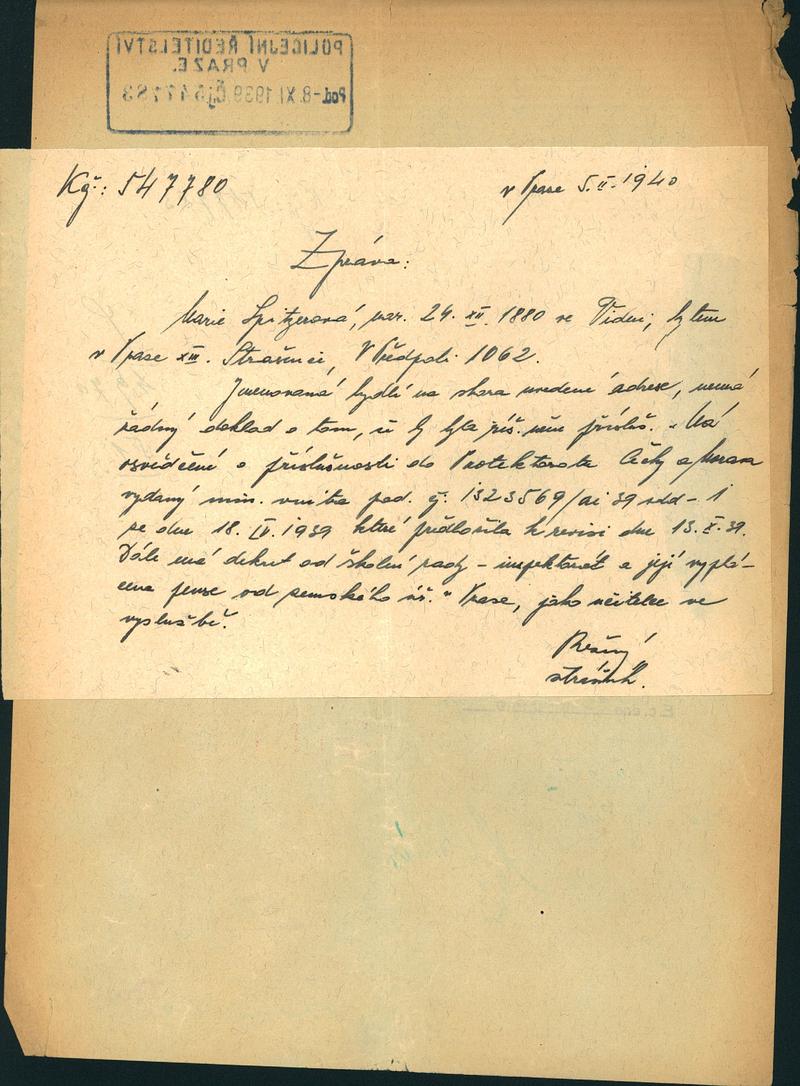 POLICEJNÍ ŘEDITELSTVÍ
V PRAZE.
Pod. -8.XI.1939 Čj.
Kčj.: 547780
v Praze 5.II.1940
Zpráva:
Marie Spitzerová, nar. 24. XII. 1880 ve Vídni, bytem
v Praze XIII. Strašnici, V Předpolí 1062.
Jmenovaná bydlí na shora uvedené adrese, nemá
řádný doklad o tom, že by byla přísluš. Má
osvědčení o příslušnosti do Protektorátu Čechy a Morava
vydaný min. vnitra pod. čj. 1323569/ai 39 - 1
ze dne 18. IV. 1939 které předložila k revisi dne 13.X.39.
Dále má dekret od školní rady - inspektorát a její vyplá-
cena penze od zemského úř. v Praze, jako učitelce ve
výslužbě.
strážník.